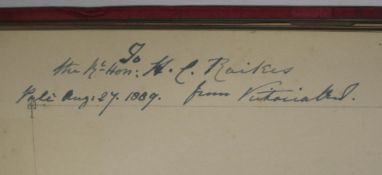 To
the Rt. Hon: H. C. Raikes
Aug. 27. 1889. from Victoria